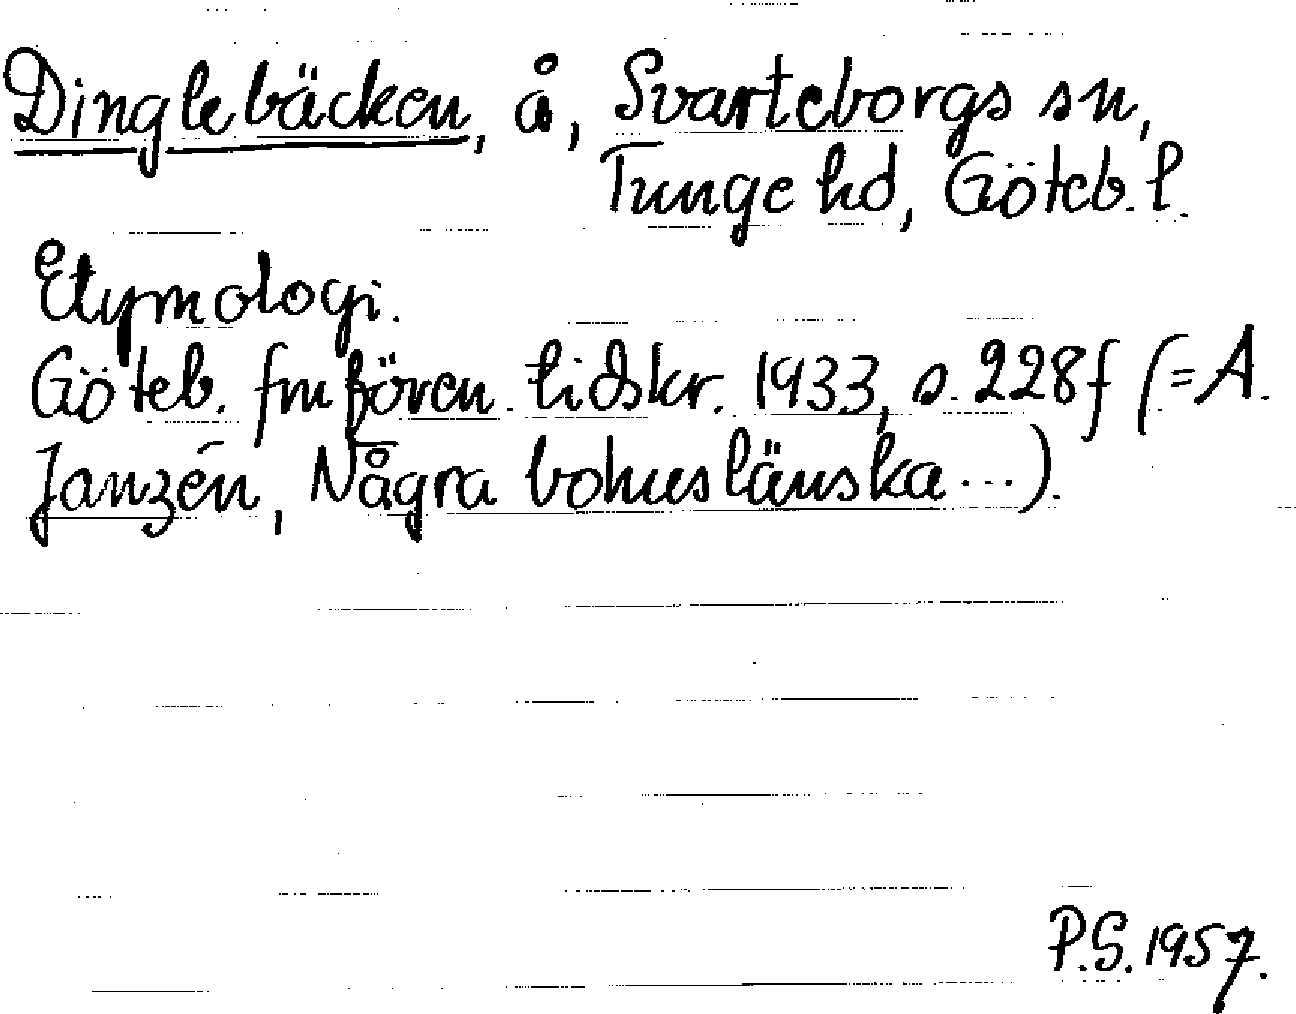 Dinglebäcken, å, Svarteborgs sn,
Tunge hd, Göteb. l.
Etymologi.
Göteb. fmfören. tidskr. 1933, s. 228f (=A.
Janzén, Några bohuslänska...).
P.S. 1957.